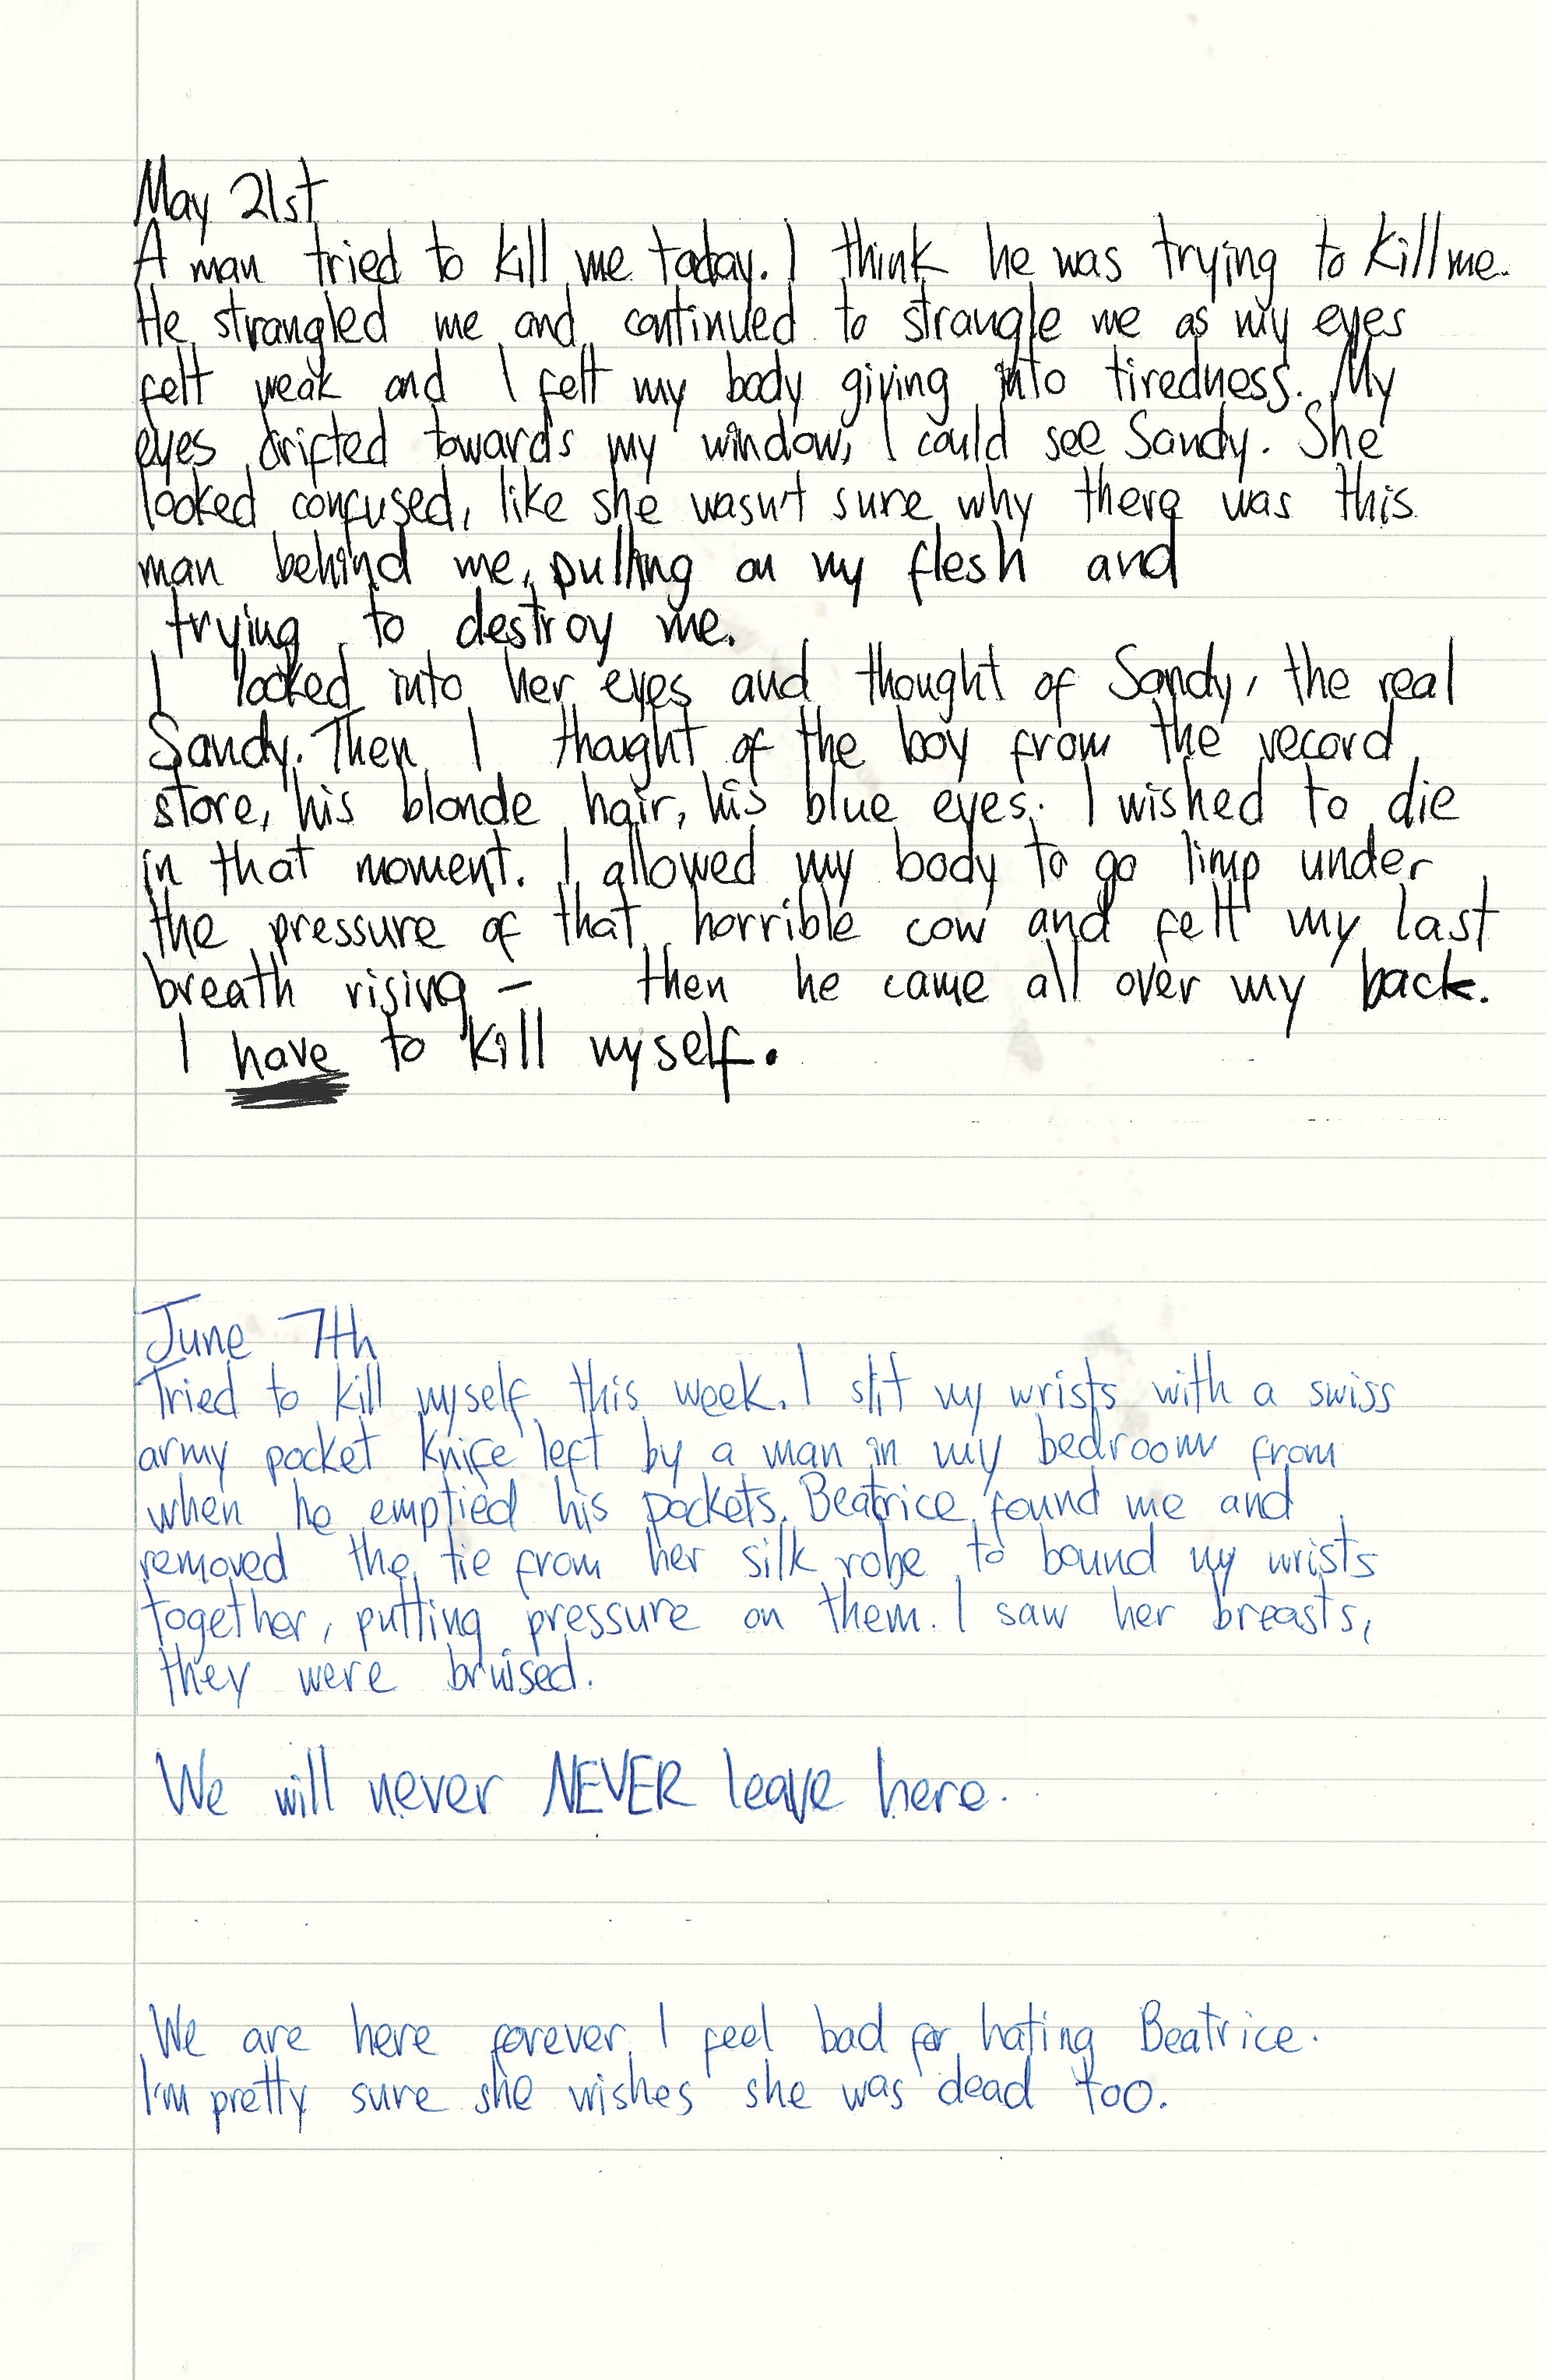 May 21st
A man tried to kill me today. I think he was trying to kill me.
He strangled me and continued to strangle me as my eyes
felt weak and I felt my body giving into tiredness. My
eyes drifted towards my window, I could see Sandy. She
looked confused, like she wasn't sure why there was this
man behind me, pulling on my flesh and
trying to destroy me.
I looked into her eyes and thought of Sandy, the real
Sandy. Then I thought of the boy from the record
store, his blonde hair, his blue eyes. I wished to die
in that moment. I allowed my body to go limp under
the pressure of that horrible cow and felt my last
breath rising – then he came all over my back.
I have to kill myself.
June 7th
Tried to kill myself this week. I slit my wrists with a swiss
army pocket knife left by a man in my bedroom from
when he emptied his pockets. Beatrice found me and
removed the tie from her silk robe to bound my wrists
together, putting pressure on them. I saw her breasts,
they were bruised.
We will never NEVER leave here.
We are here forever. I feel bad for hating Beatrice.
I'm pretty sure she wishes she was dead too.